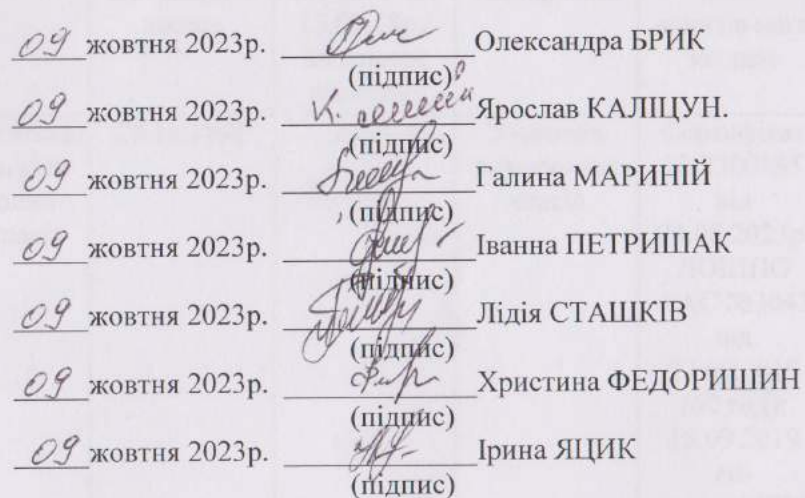 09 жовтня 2023р. Олександра БРИК
(підпис)
09 жовтня 2023р. Ярослав КАЛІЦУН.
(підпис)
09 жовтня 2023р. Галина МАРИНІЙ
(підпис)
09 жовтня 2023р. Іванна ПЕТРИШАК
(підпис)
09 жовтня 2023р. Лідія СТАШКІВ
(підпис)
09 жовтня 2023р. Христина ФЕДОРИШИН
(підпис)
09 жовтня 2023р. Ірина ЯЦИК
(підпис)